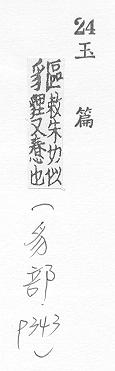 24
玉篇
貙敕朱切似
貍又惷也
(豸部.p343)